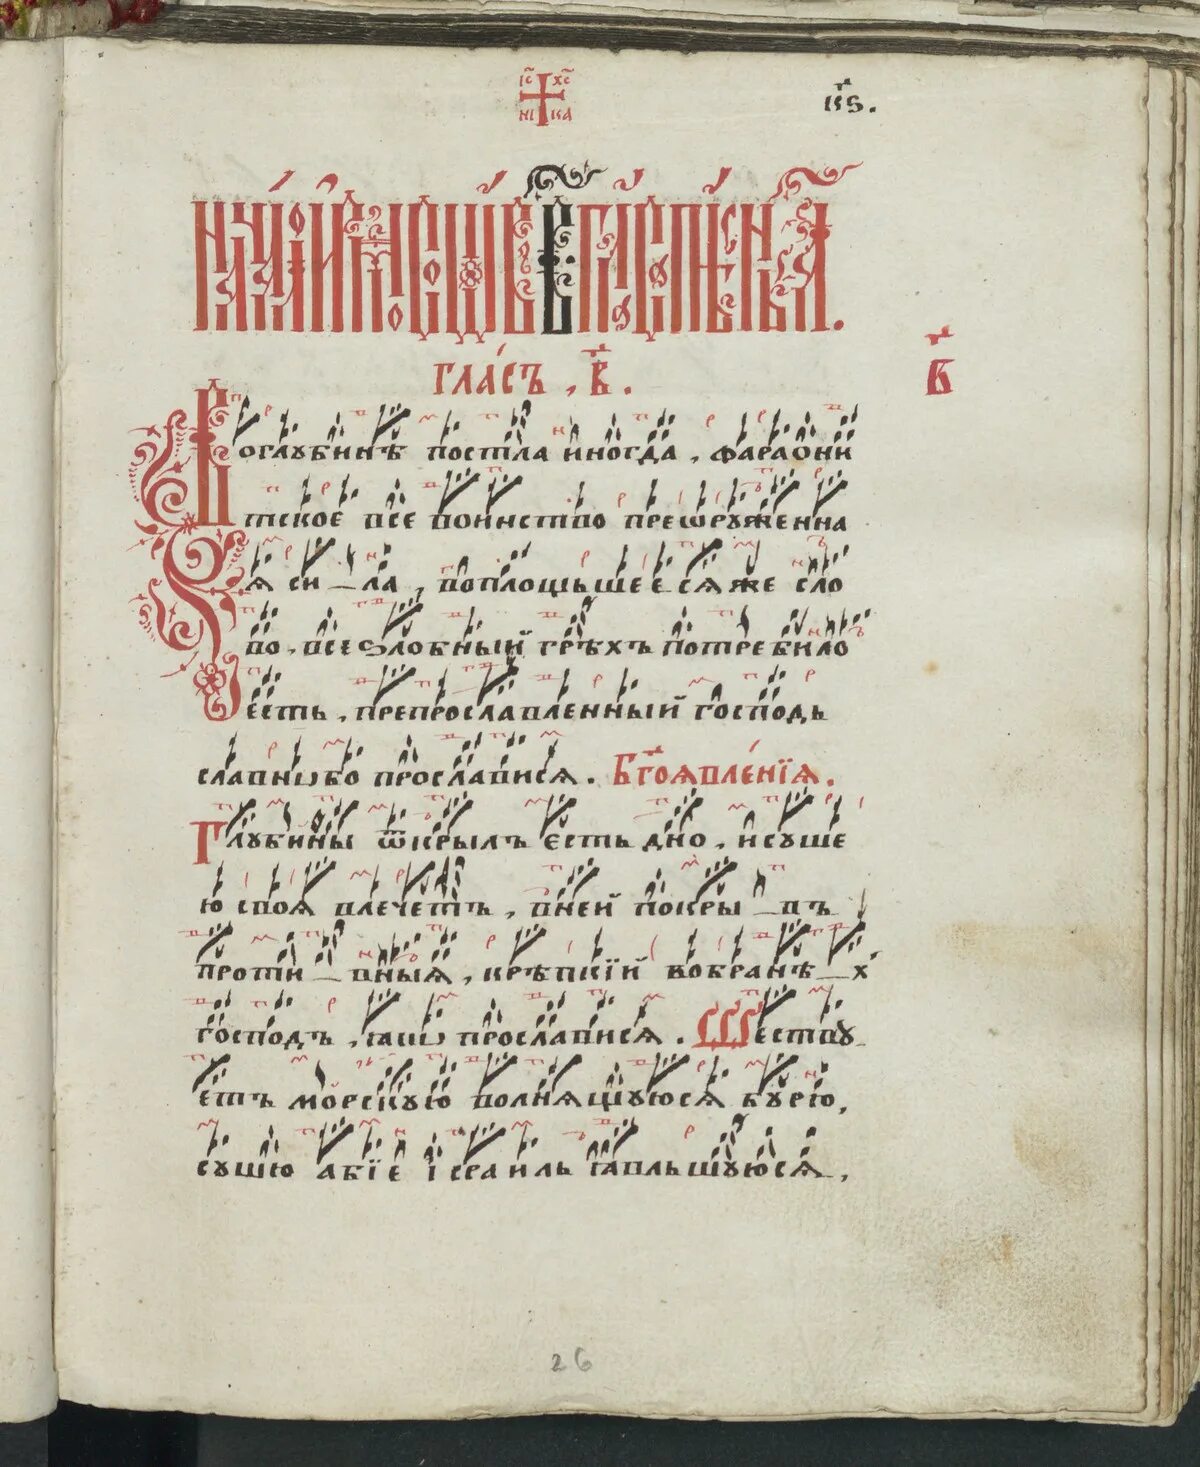 І҃С Х҃С
НІ КА
К҃Ѕ.
Гла́съ, В҃.
В҃
Воглубинѣ постла иногда, фараѡни
тское все воинство преѡруженна
ѧ си_ла, воплощьшеесѧже сло
во, всеѕлобный грѣхъ потребило
есть, препрославленный господь
славнѡбо прослависѧ. Бг҃оѧвле́нїѧ.
Глубины ѿкрылъ есть дно, исуше
ю своѧ влечетъ, вней покры_въ
проти_вныѧ, крѣпкїй вобранѣ_х
господь, ꙗкѡ прослависѧ. Шеству_
етъ морскую волнѧщуюсѧ бурю,
сушю абїе ісраиль ꙗвльшуюсѧ,
26